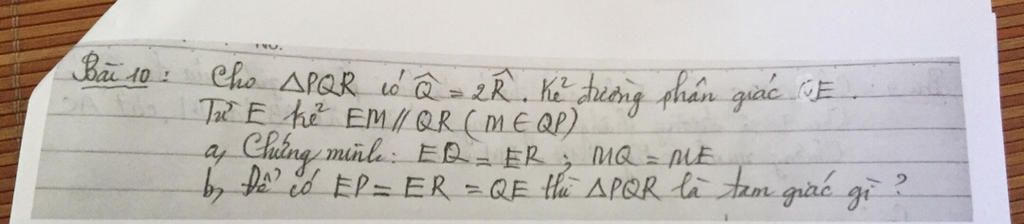 No.
Bài 10: Cho ΔPQR có Q̂ = 2R̂. Kẻ đường phân giác QE.
Từ E kẻ EM // QR (M ∈ QP)
a, Chứng minh: EQ = ER; MQ = ME
b, Để có EP = ER = QE thì ΔPQR là tam giác gì?